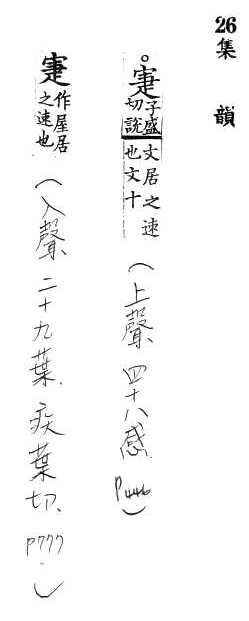 26集韻
。寁子感切說文居之速也文十(上聲 四十八感 P446)
寁作屋居之速也(入聲 二十九葉 疾葉切 P777.)